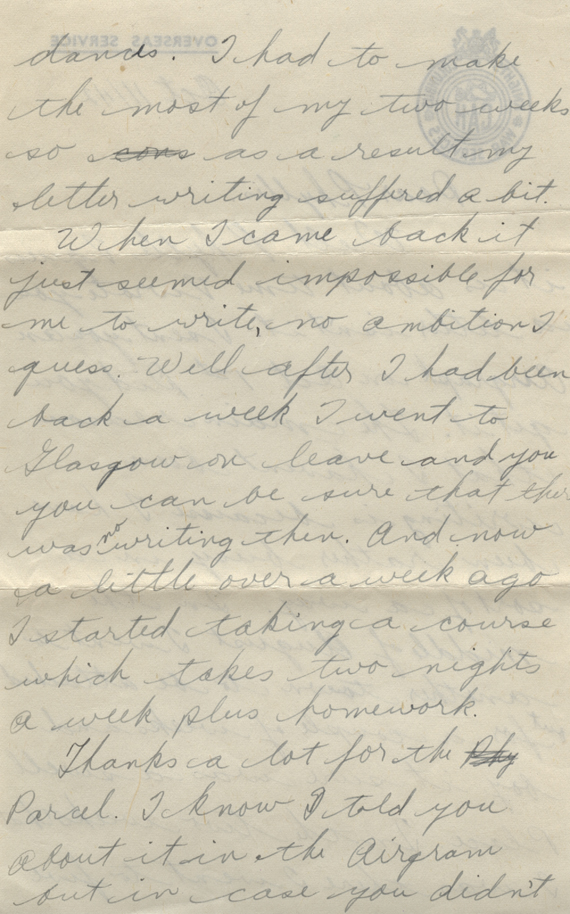 dances. I had to make
the most of my two weeks
so cons as a result my
letter writing suffered a bit.
When I came back it
just seemed impossible for
me to write, no ambition I
guess. Well after I had been
back a week I went to
Glasgow on leave and you
you can be sure that ther
was no writing then. And now
a little over a week ago
I started taking a course
which takes two nights
a week plus homework.
Thanks a lot for the
Parcel. I know I told you
about it in the Airgram
but in case you didn't
OVERSEAS SERVICE